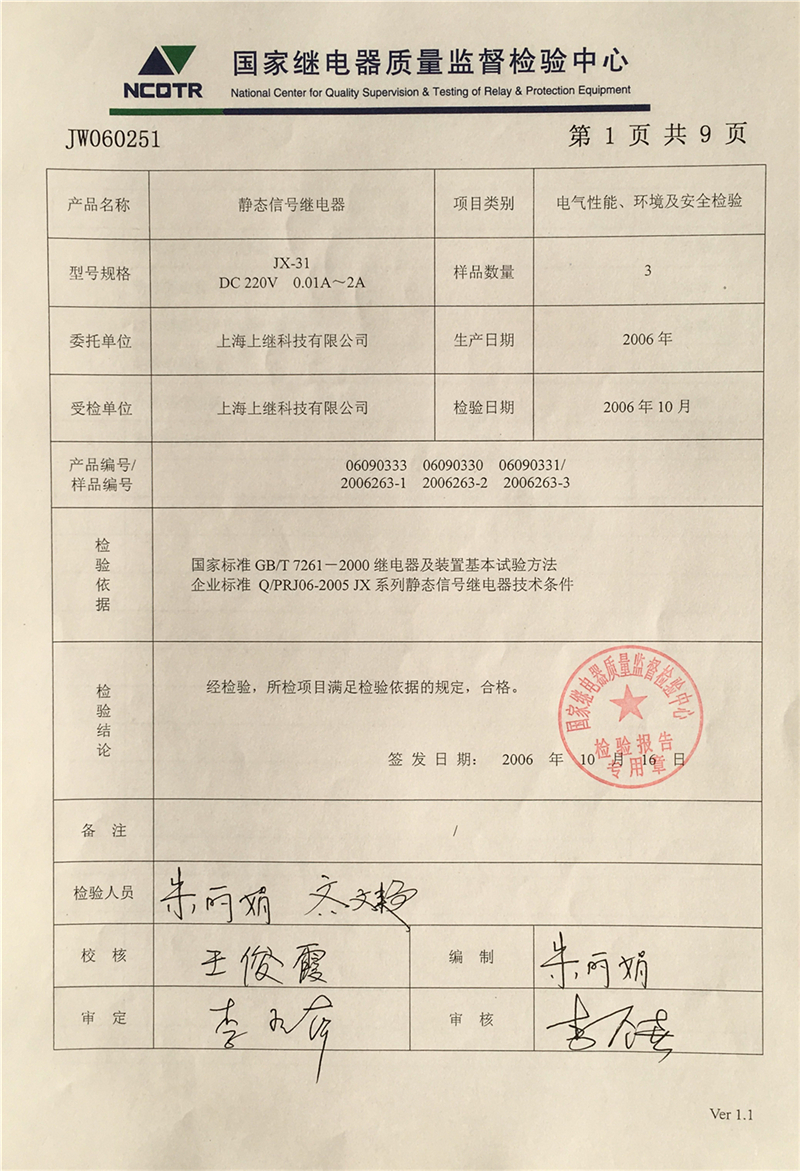 NCOTR
国家继电器质量监督检验中心
National Center for Quality Supervision & Testing of Relay & Protection Equipment
JW060251
第 1 页 共 9 页
产品名称
静态信号继电器
项目类别
电气性能、环境及安全检验
型号规格
JX-31
DC 220V 0.01A～2A
样品数量
3
委托单位
上海上继科技有限公司
生产日期
2006 年
受检单位
上海上继科技有限公司
检验日期
2006 年 10 月
产品编号/
样品编号
06090333 06090330 06090331/
2006263-1 2006263-2 2006263-3
检
验
依
据
国家标准 GB/T 7261－2000 继电器及装置基本试验方法
企业标准 Q/PRJ06-2005 JX 系列静态信号继电器技术条件
检
验
结
论
经检验，所检项目满足检验依据的规定，合格。
签 发 日 期： 2006 年 10 月 16 日
国家继电器质量监督检验中心
检验报告
专用章
备 注
/
检验人员
朱丽娟
校 核
王俊霞
编 制
朱丽娟
审 定
李
审 核
Ver 1.1